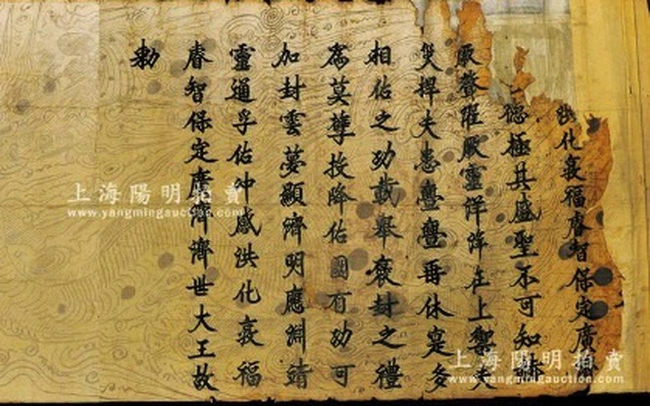 化裒福睿智保定廣
德極其盛聖不可知
厥聲濯厥靈洋洋在上禦大
災捍大患疊疊再休寔多
相佑之功載舉褒封之禮
為莫孽投降佑國有功可
加封雲夢顯濟明應淵靖
靈通孚佑冲感洪化裒福
睿智保定廣濟濟世大王故
勅
上海陽明拍賣
www.yangmingauction.com
上海陽明拍賣
www.yangmingauction.com